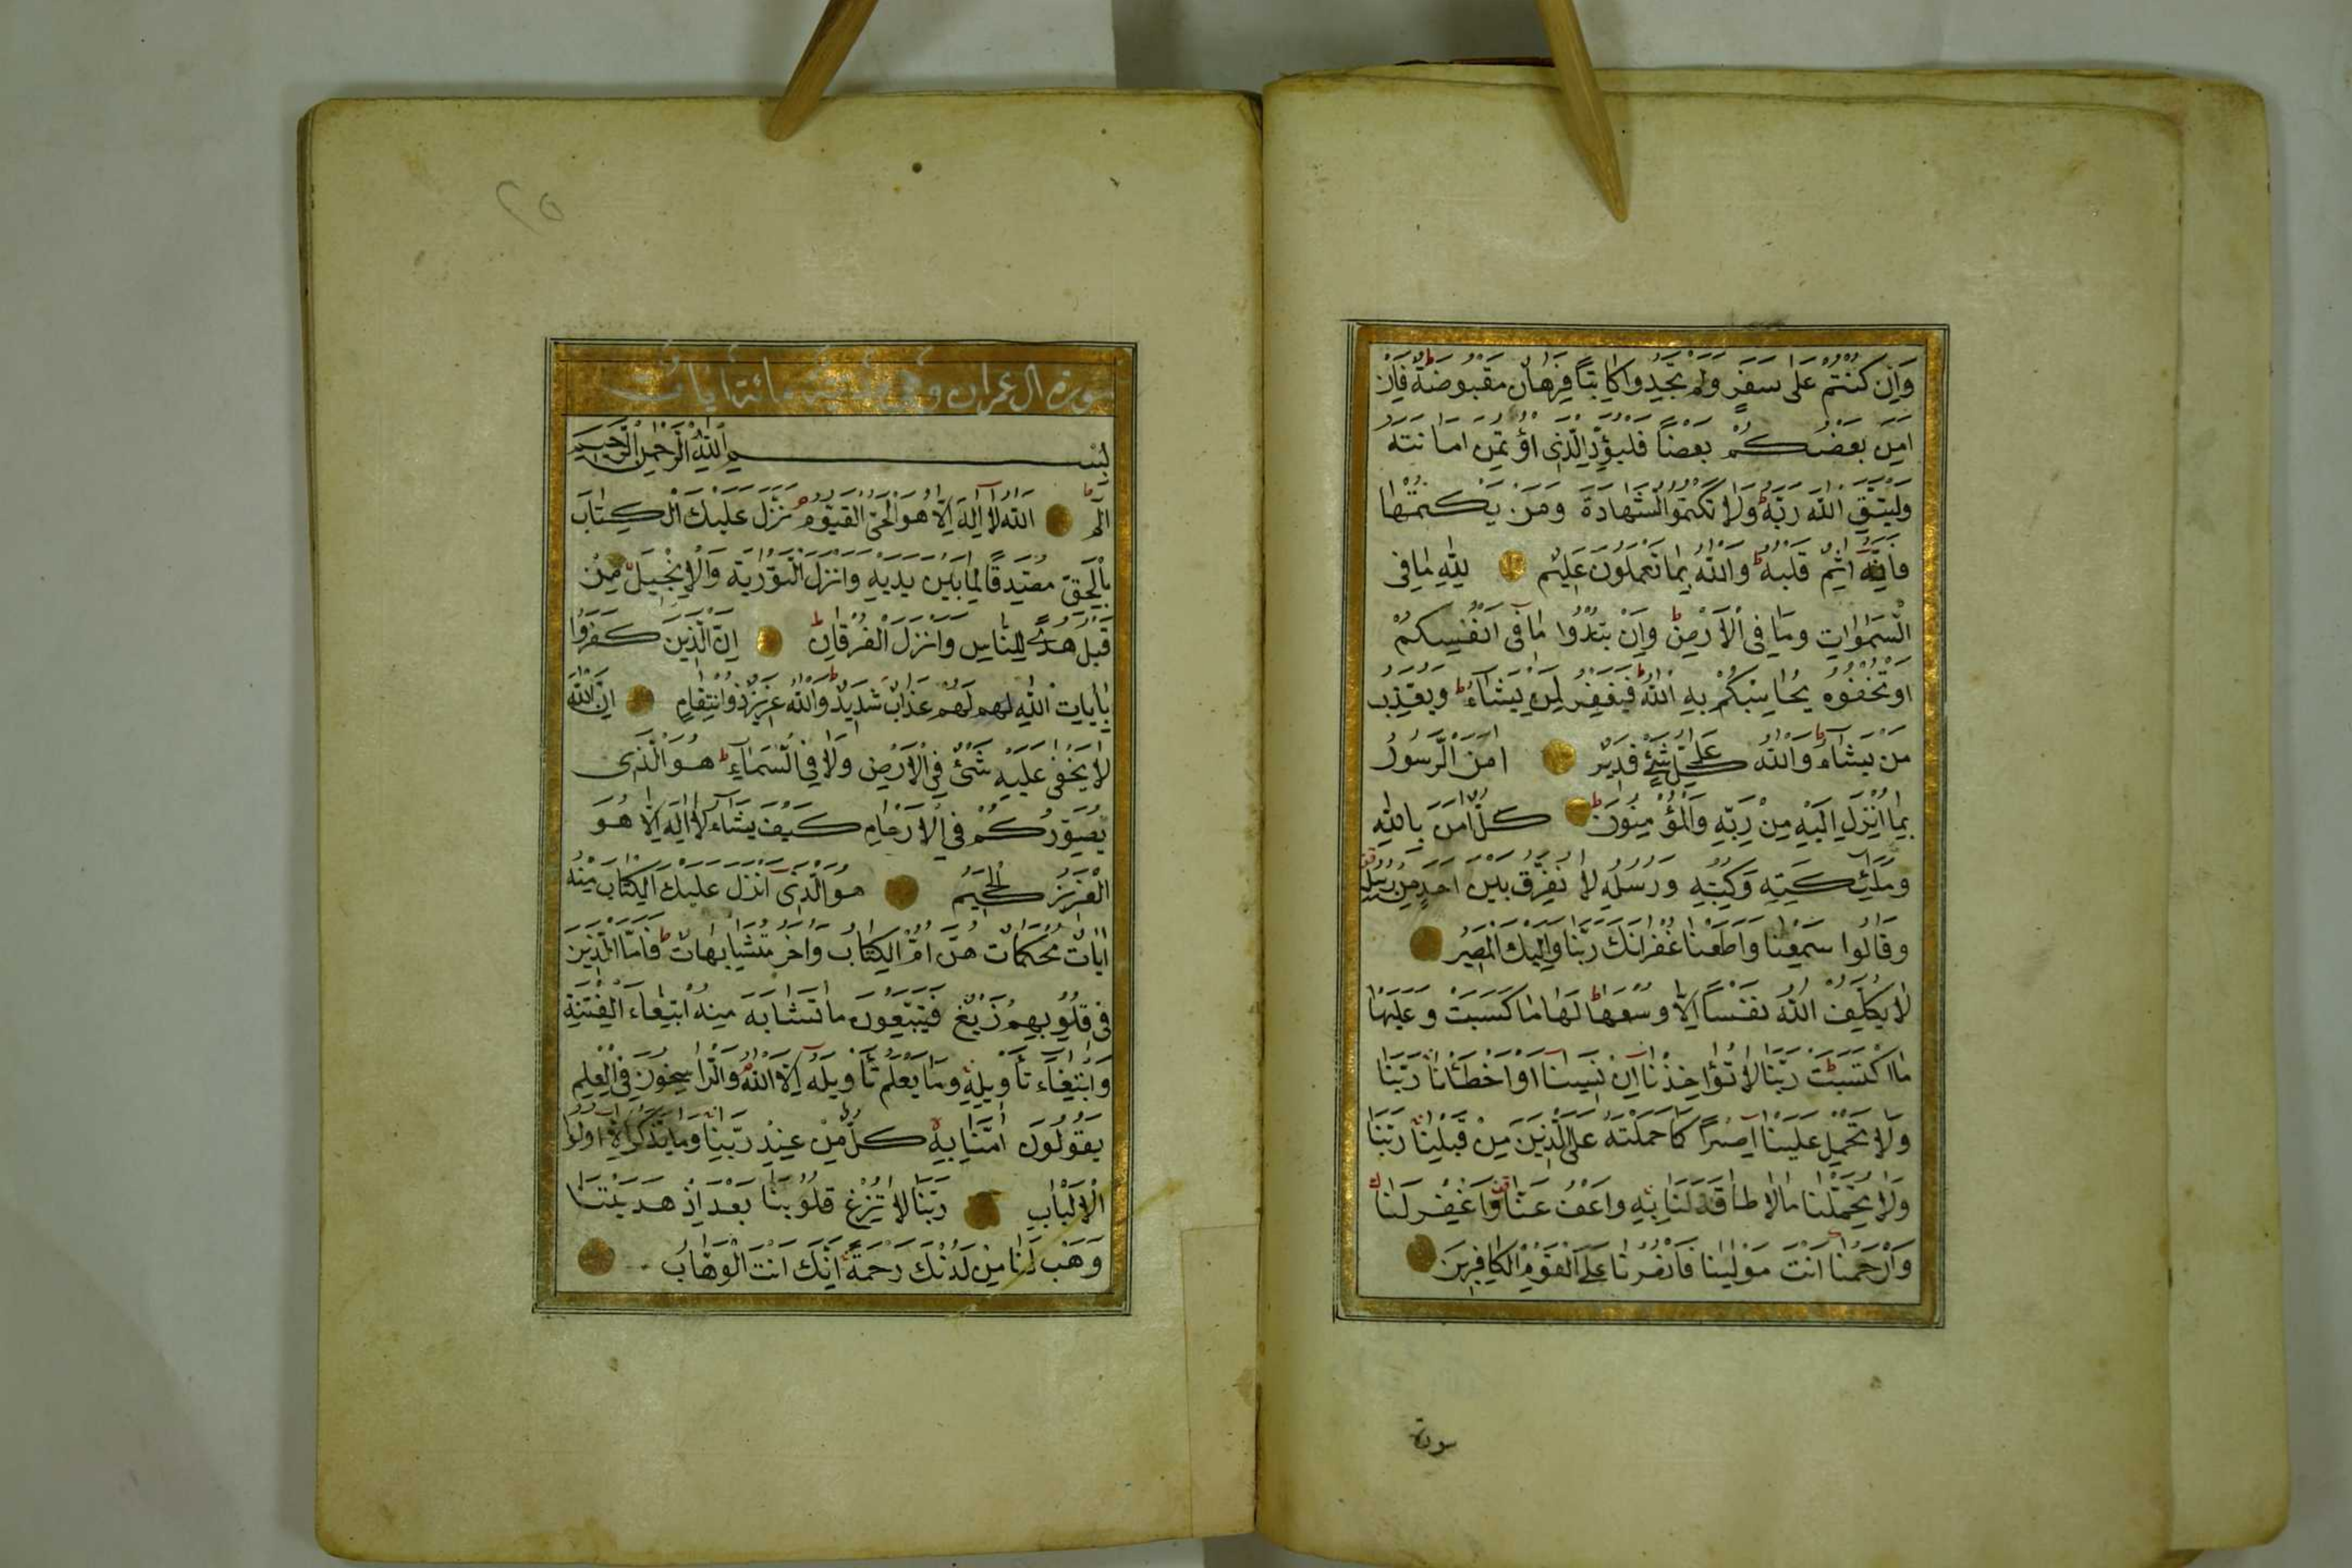 وَاِنْ كُنْتُمْ عَلٰى سَفَرٍ وَلَمْ تَجِدُوا كَاتِبًا فَرِهَانٌ مَقْبُوضَةٌ ط فَاِنْ
اَمِنَ بَعْضُكُمْ بَعْضًا فَلْيُؤَدِّ الَّذِى اؤْتُمِنَ اَمَانَتَهُ
وَلْيَتَّقِ اللّٰهَ رَبَّهُ ط وَلَا تَكْتُمُوا الشَّهَادَةَ وَمَنْ يَكْتُمْهَا
فَاِنَّهُ اٰثِمٌ قَلْبُهُ ط وَاللّٰهُ بِمَا تَعْمَلُونَ عَلِيمٌ لِلّٰهِ مَا فِى
السَّمٰوَاتِ وَمَا فِى الْاَرْضِ ط وَاِنْ تُبْدُوا مَا فِى اَنْفُسِكُمْ
اَوْ تُخْفُوهُ يُحَاسِبْكُمْ بِهِ اللّٰهُ ط فَيَغْفِرُ لِمَنْ يَشَاءُ ط وَيُعَذِّبُ
مَنْ يَشَاءُ ط وَاللّٰهُ عَلٰى كُلِّ شَىْءٍ قَدِيرٌ اٰمَنَ الرَّسُولُ
بِمَا اُنْزِلَ اِلَيْهِ مِنْ رَبِّهِ وَالْمُؤْمِنُونَ ط كُلٌّ اٰمَنَ بِاللّٰهِ
وَمَلٰئِكَتِهِ وَكُتُبِهِ وَرُسُلِهِ لَا نُفَرِّقُ بَيْنَ اَحَدٍ مِنْ رُسُلِهِ
وَقَالُوا سَمِعْنَا وَاَطَعْنَا غُفْرَانَكَ رَبَّنَا وَاِلَيْكَ الْمَصِيرُ
لَا يُكَلِّفُ اللّٰهُ نَفْسًا اِلَّا وُسْعَهَا ط لَهَا مَا كَسَبَتْ وَعَلَيْهَا
مَا اكْتَسَبَتْ ط رَبَّنَا لَا تُؤَاخِذْنَا اِنْ نَسِينَا اَوْ اَخْطَأْنَا رَبَّنَا
وَلَا تَحْمِلْ عَلَيْنَا اِصْرًا كَمَا حَمَلْتَهُ عَلَى الَّذِينَ مِنْ قَبْلِنَا رَبَّنَا
وَلَا تُحَمِّلْنَا مَا لَا طَاقَةَ لَنَا بِهِ وَاعْفُ عَنَّا وَاغْفِرْ لَنَا
وَارْحَمْنَا اَنْتَ مَوْلٰينَا فَانْصُرْنَا عَلَى الْقَوْمِ الْكَافِرِينَ
سورة
٢٥
سورة ال عمران وهى مائة ايات
بِسْمِ اللّٰهِ الرَّحْمٰنِ الرَّحِيمِ
الٓمٓ اَللّٰهُ لَا اِلٰهَ اِلَّا هُوَ الْحَىُّ الْقَيُّومُ نَزَّلَ عَلَيْكَ الْكِتَابَ
بِالْحَقِّ مُصَدِّقًا لِمَا بَيْنَ يَدَيْهِ وَاَنْزَلَ التَّوْرٰيةَ وَالْاِنْجِيلَ مِنْ
قَبْلُ هُدًى لِلنَّاسِ وَاَنْزَلَ الْفُرْقَانَ ط اِنَّ الَّذِينَ كَفَرُوا
بِاٰيَاتِ اللّٰهِ لهم لَهُمْ عَذَابٌ شَدِيدٌ ط وَاللّٰهُ عَزِيزٌ ذُو انْتِقَامٍ اِنَّ اللّٰهَ
لَا يَخْفٰى عَلَيْهِ شَىْءٌ فِى الْاَرْضِ وَلَا فِى السَّمَاءِ ط هُوَ الَّذِى
يُصَوِّرُكُمْ فِى الْاَرْحَامِ كَيْفَ يَشَاءُ لَا اِلٰهَ اِلَّا هُوَ
الْعَزِيزُ الْحَكِيمُ هُوَ الَّذِى اَنْزَلَ عَلَيْكَ الْكِتَابَ مِنْهُ
اٰيَاتٌ مُحْكَمَاتٌ هُنَّ اُمُّ الْكِتَابِ وَاُخَرُ مُتَشَابِهَاتٌ ط فَاَمَّا الَّذِينَ
فِى قُلُوبِهِمْ زَيْغٌ فَيَتَّبِعُونَ مَا تَشَابَهَ مِنْهُ ابْتِغَاءَ الْفِتْنَةِ
وَابْتِغَاءَ تَأْوِيلِهِ وَمَا يَعْلَمُ تَأْوِيلَهُ اِلَّا اللّٰهُ وَالرَّاسِخُونَ فِى الْعِلْمِ
يَقُولُونَ اٰمَنَّا بِهِ كُلٌّ مِنْ عِنْدِ رَبِّنَا وَمَا يَذَّكَّرُ اِلَّا اُولُوا
الْاَلْبَابِ رَبَّنَا لَا تُزِغْ قُلُوبَنَا بَعْدَ اِذْ هَدَيْتَنَا
وَهَبْ لَنَا مِنْ لَدُنْكَ رَحْمَةً اِنَّكَ اَنْتَ الْوَهَّابُ